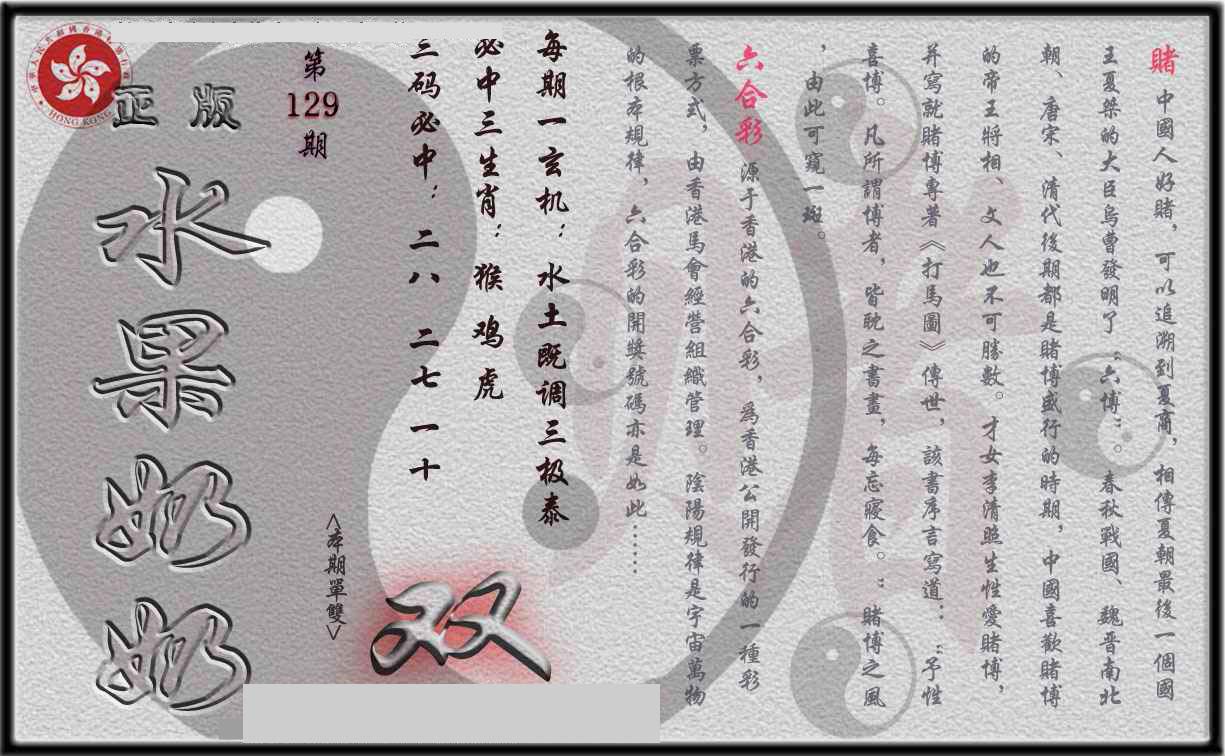 賭 中國人好賭，可以追溯到夏商，相傳夏朝最後一個國
王夏桀的大臣烏曹發明了“六博”。春秋戰國、魏晋南北
朝、唐宋、清代後期都是賭博盛行的時期，中國喜歡賭博
的帝王將相、文人也不可勝數。才女李清照生性愛賭博，
并寫就賭博專著《打馬圖》傳世，該書序言寫道：“予性
喜博。凡所謂博者，皆耽之書畫，每忘寢食。”賭博之風
，由此可窺一斑。
六合彩 源于香港的六合彩，爲香港公開發行的一種彩
票方式，由香港馬會經營組織管理。陰陽規律是宇宙萬物
的根本規律，六合彩的開獎號碼亦是如此……
每期一玄机：水土既调三极泰
必中三生肖：猴鸡虎
三码必中：二八 二七 一十
第
129
期
<本期單雙>
双
正版
水果奶奶
HONG KONG